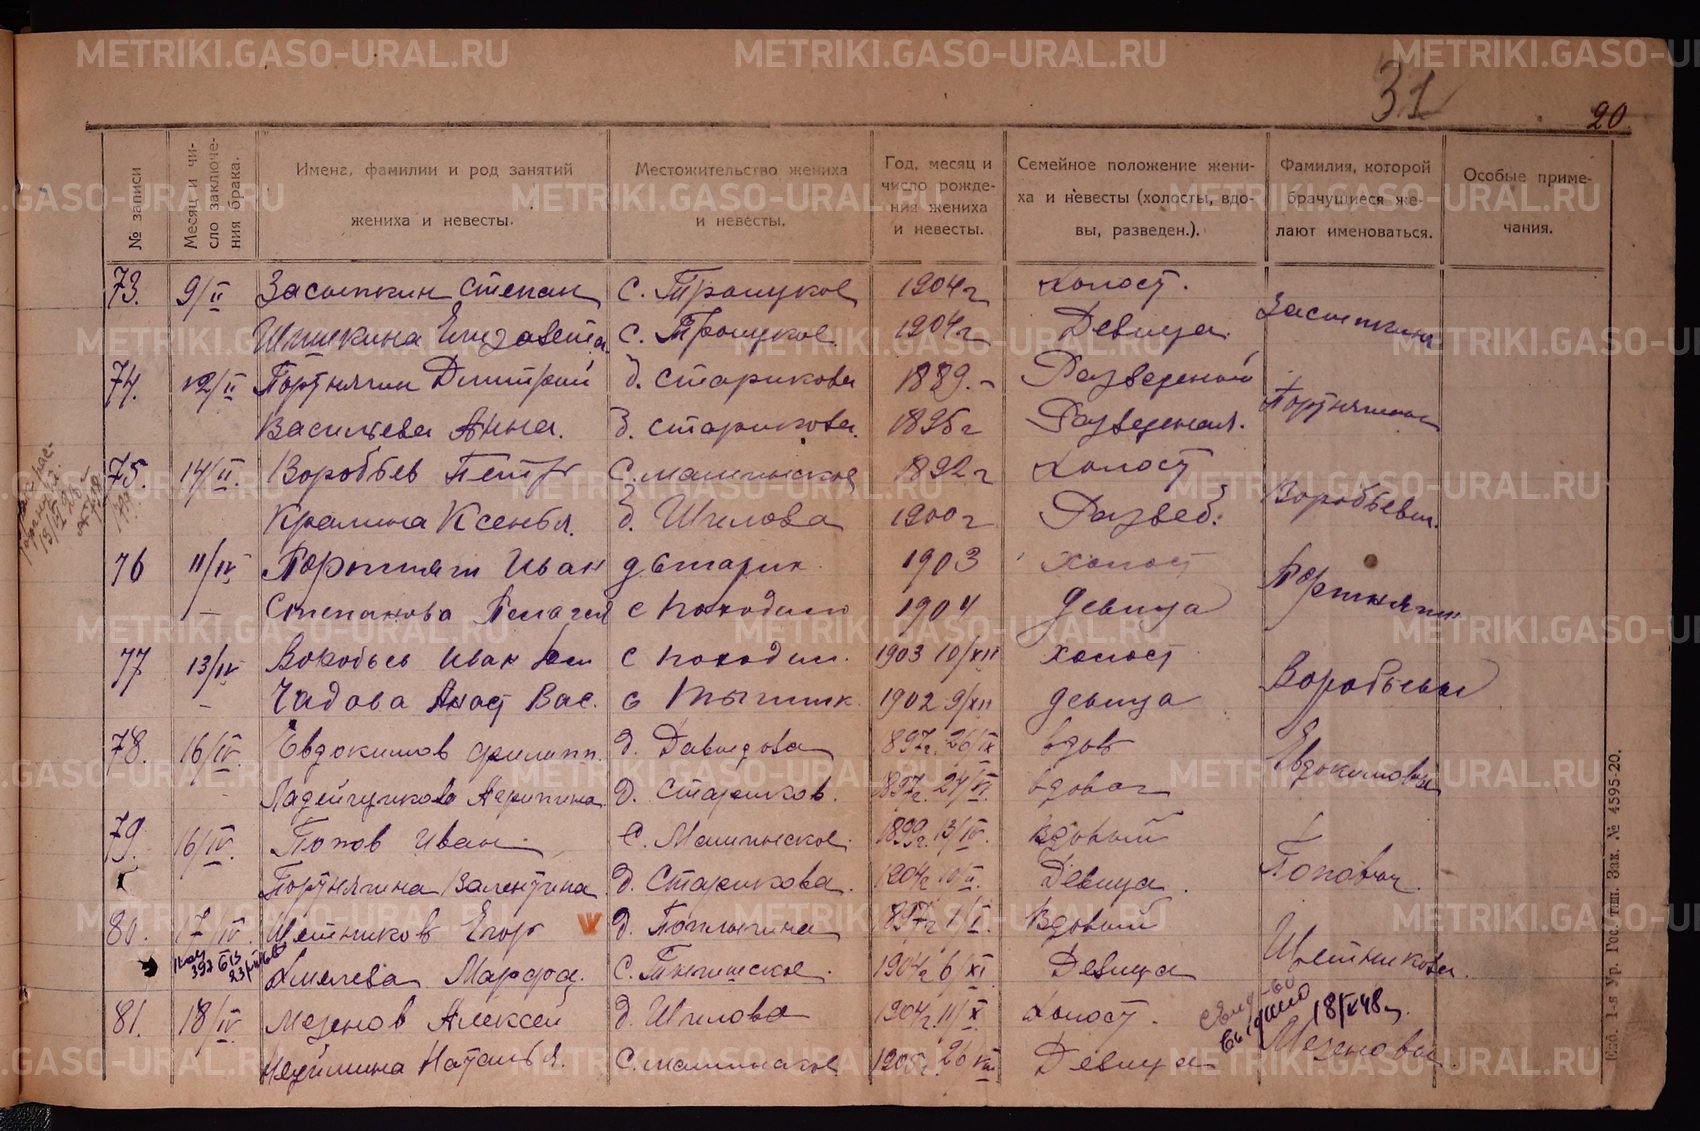 METRIKI.GASO-URAL.RU
31
20.
№ записи
Месяц и чи-
сло заключе-
ния брака.
Имена, фамилии и род занятий
жениха и невесты.
Местожительство жениха
и невесты.
Год, месяц и
число рожде-
ния жениха
и невесты.
Семейное положение жени-
ха и невесты (холосты, вдо-
вы, разведен.).
Фамилия, которой
брачущиеся же-
лают именоваться.
Особые приме-
чания.
73. 9/II Засыпкин Степан с. Троицкое 1904 г Холост. Засыпкины
Шишкина Елизавета с. Троицкое 1904 г Девица.
74. 12/II Портнягин Дмитрий д. Старикова 1889. Разведеный Портнягины
Васильева Анна. д. Старикова. 1895 г Разведеная.
75. 14/II. Воробьев Петр С. Мамынское 1892 г Холост Воробьевы.
Ксенья. д. Шилова 1900 г Развед.
76 11/IV Портнягин Иван д Старик 1903 холост Портнягин
Степанова Пелагея с Походил 1904 девица
77 13/IV Воробьев Иван с Походил. 1903 10/XII холост Воробьевы
Чадова Анаст Вас. с 1902 9/XII девица
78. 16/IV. Евдокимов Филипп. д. Давыдова 1897 г. 26/IX вдов Евдокимовы
Ладейщикова Агрипина д. Стариков. 1897 г. 24/VI. вдовая
79. 16/IV. Попов Иван. С. Маминское. 1899 г. 13/IV. Вдовый Поповы.
Портнягина Валентина д. Старикова. 1904 г. Девица.
80. 17/IV. Шветников Егор д. 1897 г. 1/I. Вдовый Шветниковы.
Хмелева Марфа. С. 1904 г. 6/XI Девица
81. 18/IV Мезенов Алексей д. Шилова 1904 г. 11/X. Холост. Мезеновы
Наталья. С. Маминское 1905 г. 26/VIII Девица
Свид-во
выдано
18/X 48 г.
Свб. 1-я Ур. Гос. тип. Зак. № 4595-20.